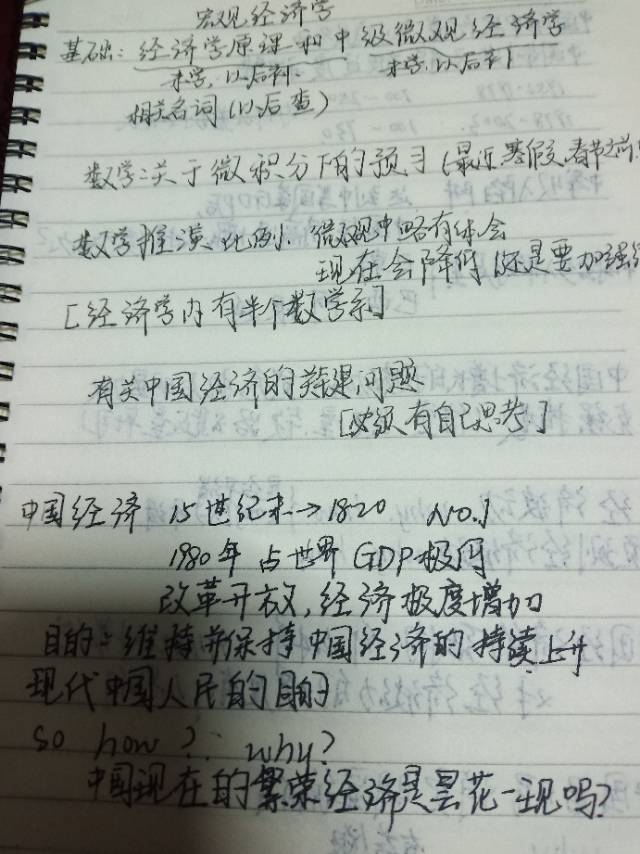 宏观经济学
基础: 经济学原理和中级微观经济学
未学,以后补. 未学,以后补
相关名词(以后查)
数学:关于微积分下的预习(最近寒假,春节之前
数学推演比例. 微观中略有体会
现在会降低(还是要加强
[经济学内有半个数学系]
有关中国经济的关键问题
[必须有自己思考.]
中国经济 15世纪末→1820 NO.1
1980年占世界GDP极低
改革开放,经济极度增加
目的:维持并保持中国经济的持续上升
现代中国人民的目的
so how?: why?
中国现在的繁荣经济是昙花一现吗?